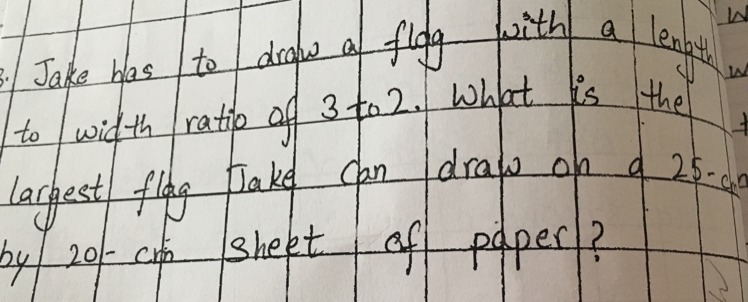 3. Jake has to draw a flag with a length
to width ratio of 3 to 2. What is the
largest flag Jake can draw on a 25-cm
by 20-cm sheet of paper?